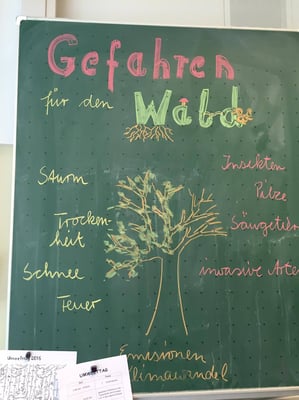 Gefahren
für den
Wald
Sturm
Trocken-
heit
Schnee
Feuer
Insekten
Pilze
Säugetier
invasive Arten
Emissionen
Klimawandel